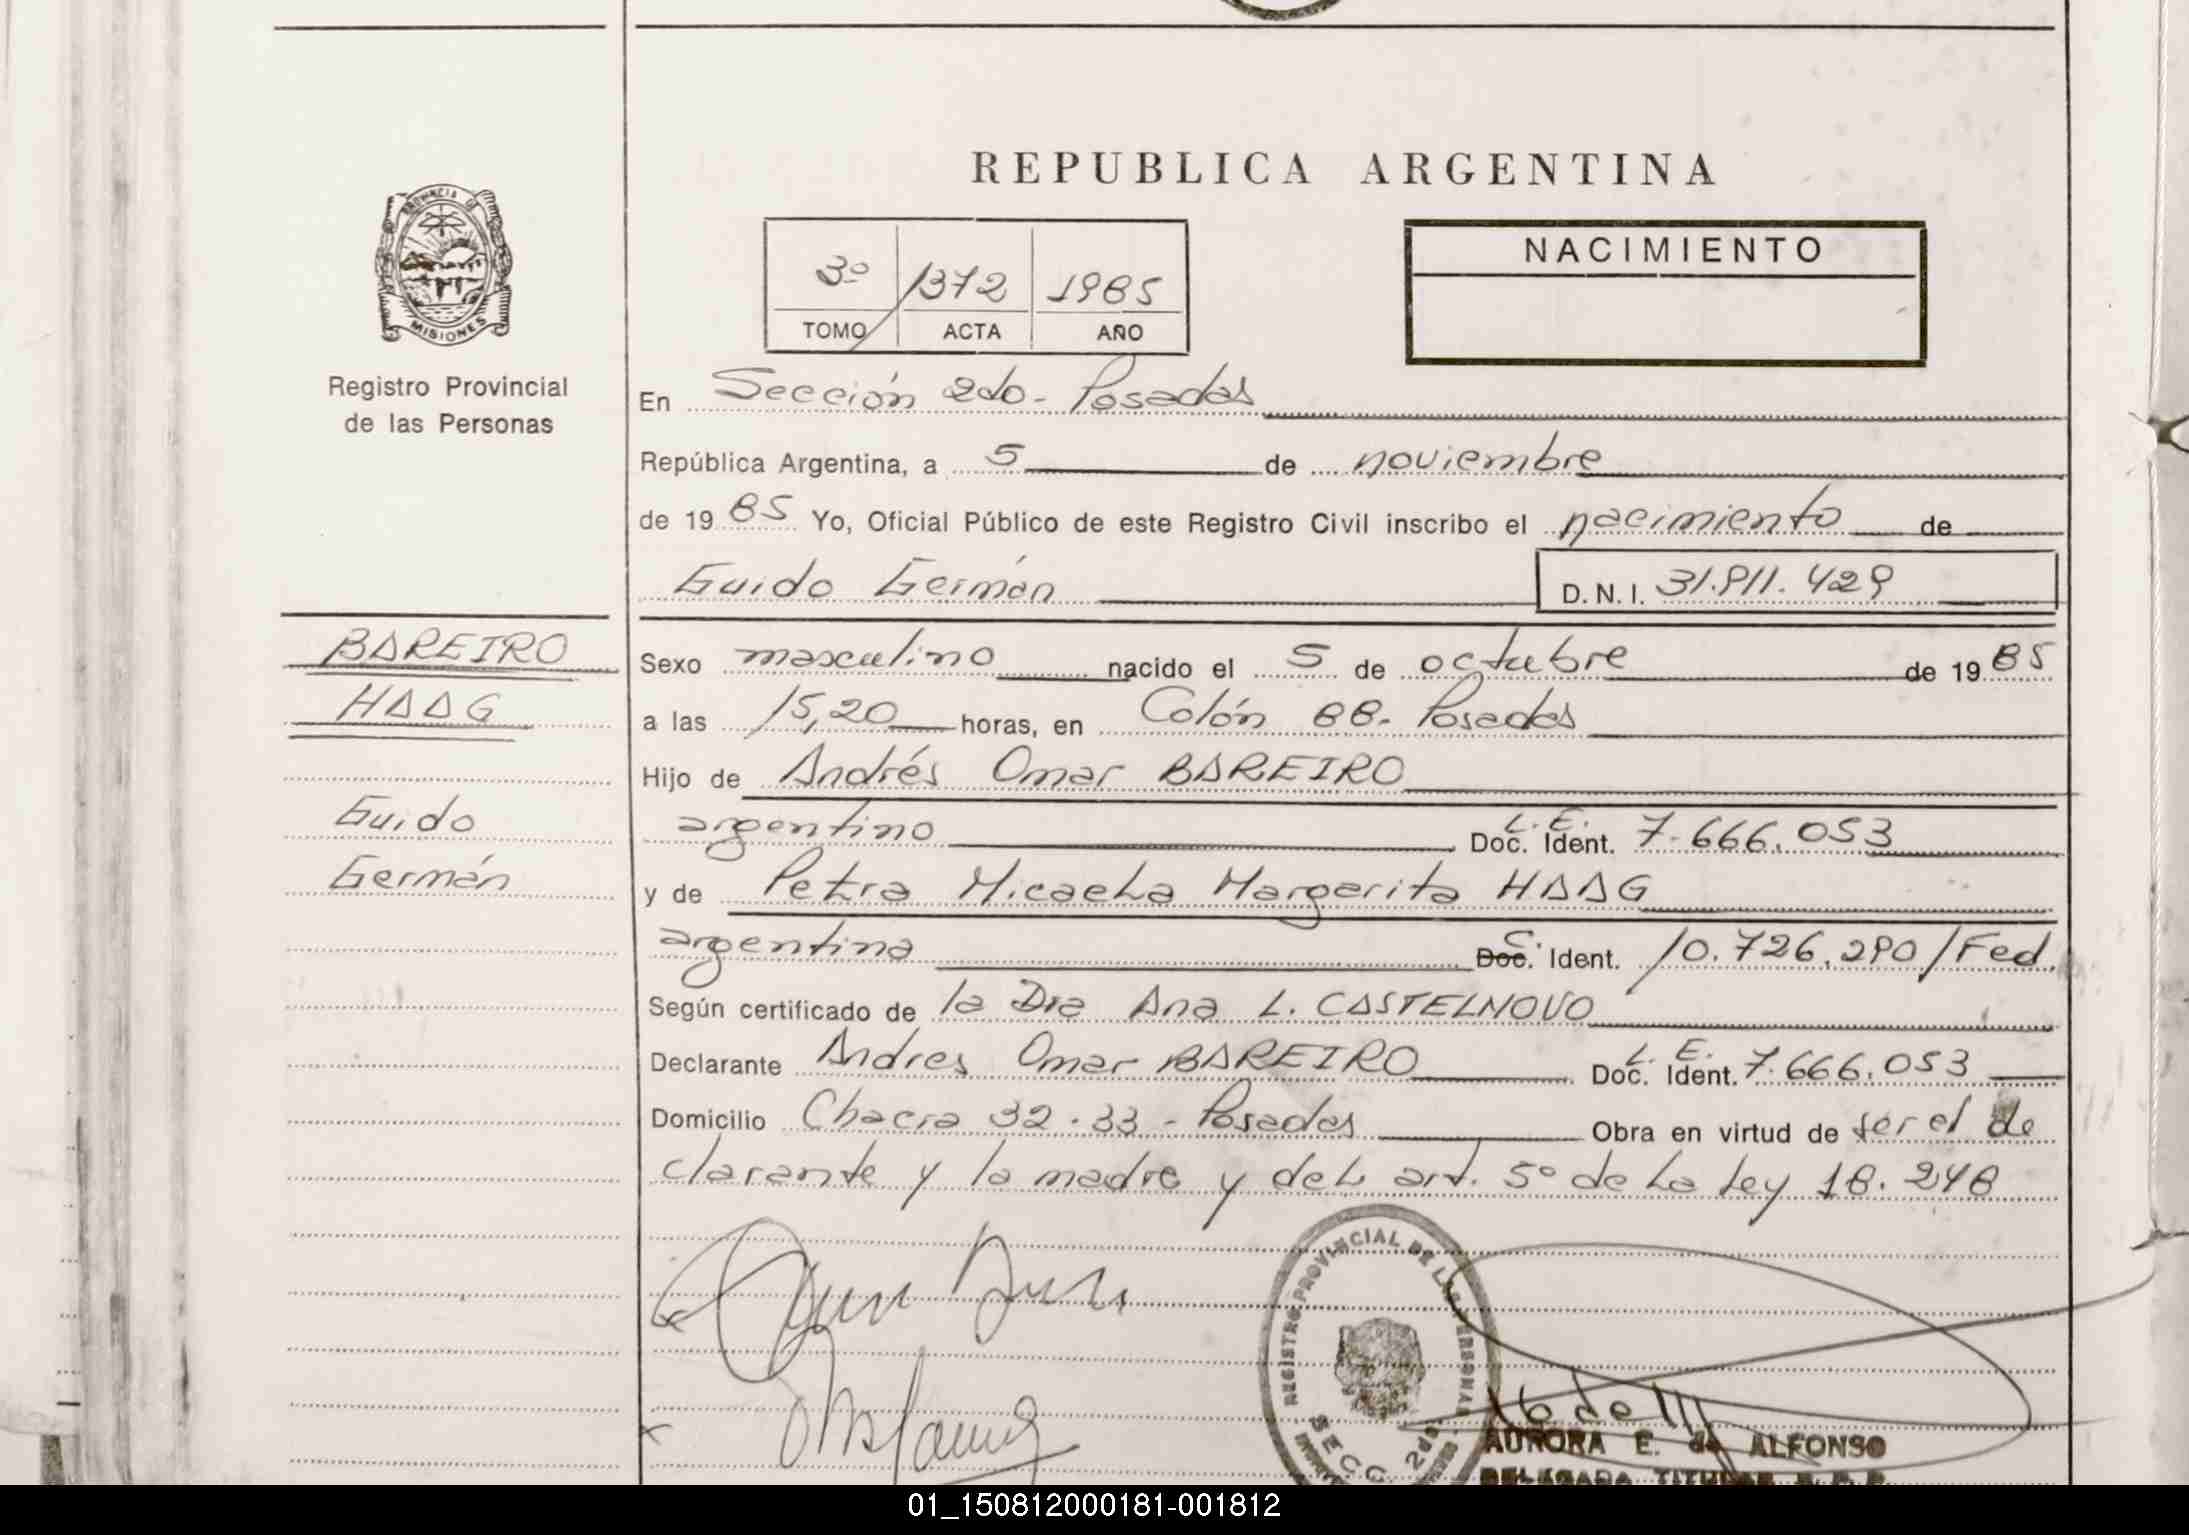 REPUBLICA ARGENTINA
PROVINCIA DE
MISIONES
Registro Provincial
de las Personas
3º 1372 1985
TOMO ACTA AÑO
NACIMIENTO
En Sección 2do- Posadas
República Argentina, a 5 de noviembre
de 19 85 Yo, Oficial Público de este Registro Civil inscribo el nacimiento de
Guido Germán D.N.I. 31.911.429
BAREIRO
HAAG
Guido
Germán
Sexo masculino nacido el 5 de octubre de 19 85
a las 15,20 horas, en Colón 88- Posadas
Hijo de Andrés Omar BAREIRO
argentino L.E. Doc. Ident. 7.666.053
y de Petra Micaela Margarita HAAG
argentina C. Doc. Ident. 10.726.290/Fed.
Según certificado de la Dra Ana L. CASTELNOVO
Declarante Andres Omar BAREIRO L.E. Doc. Ident. 7.666.053
Domicilio Chacra 32-33 - Posadas Obra en virtud de ser el de
clarante y la madre y del art. 5º de la ley 18.248
REGISTRO PROVINCIAL DE LAS PERSONAS
SECC. 2da.
AURORA E. de ALFONSO
DELEGADA TITULAR
01_150812000181-001812